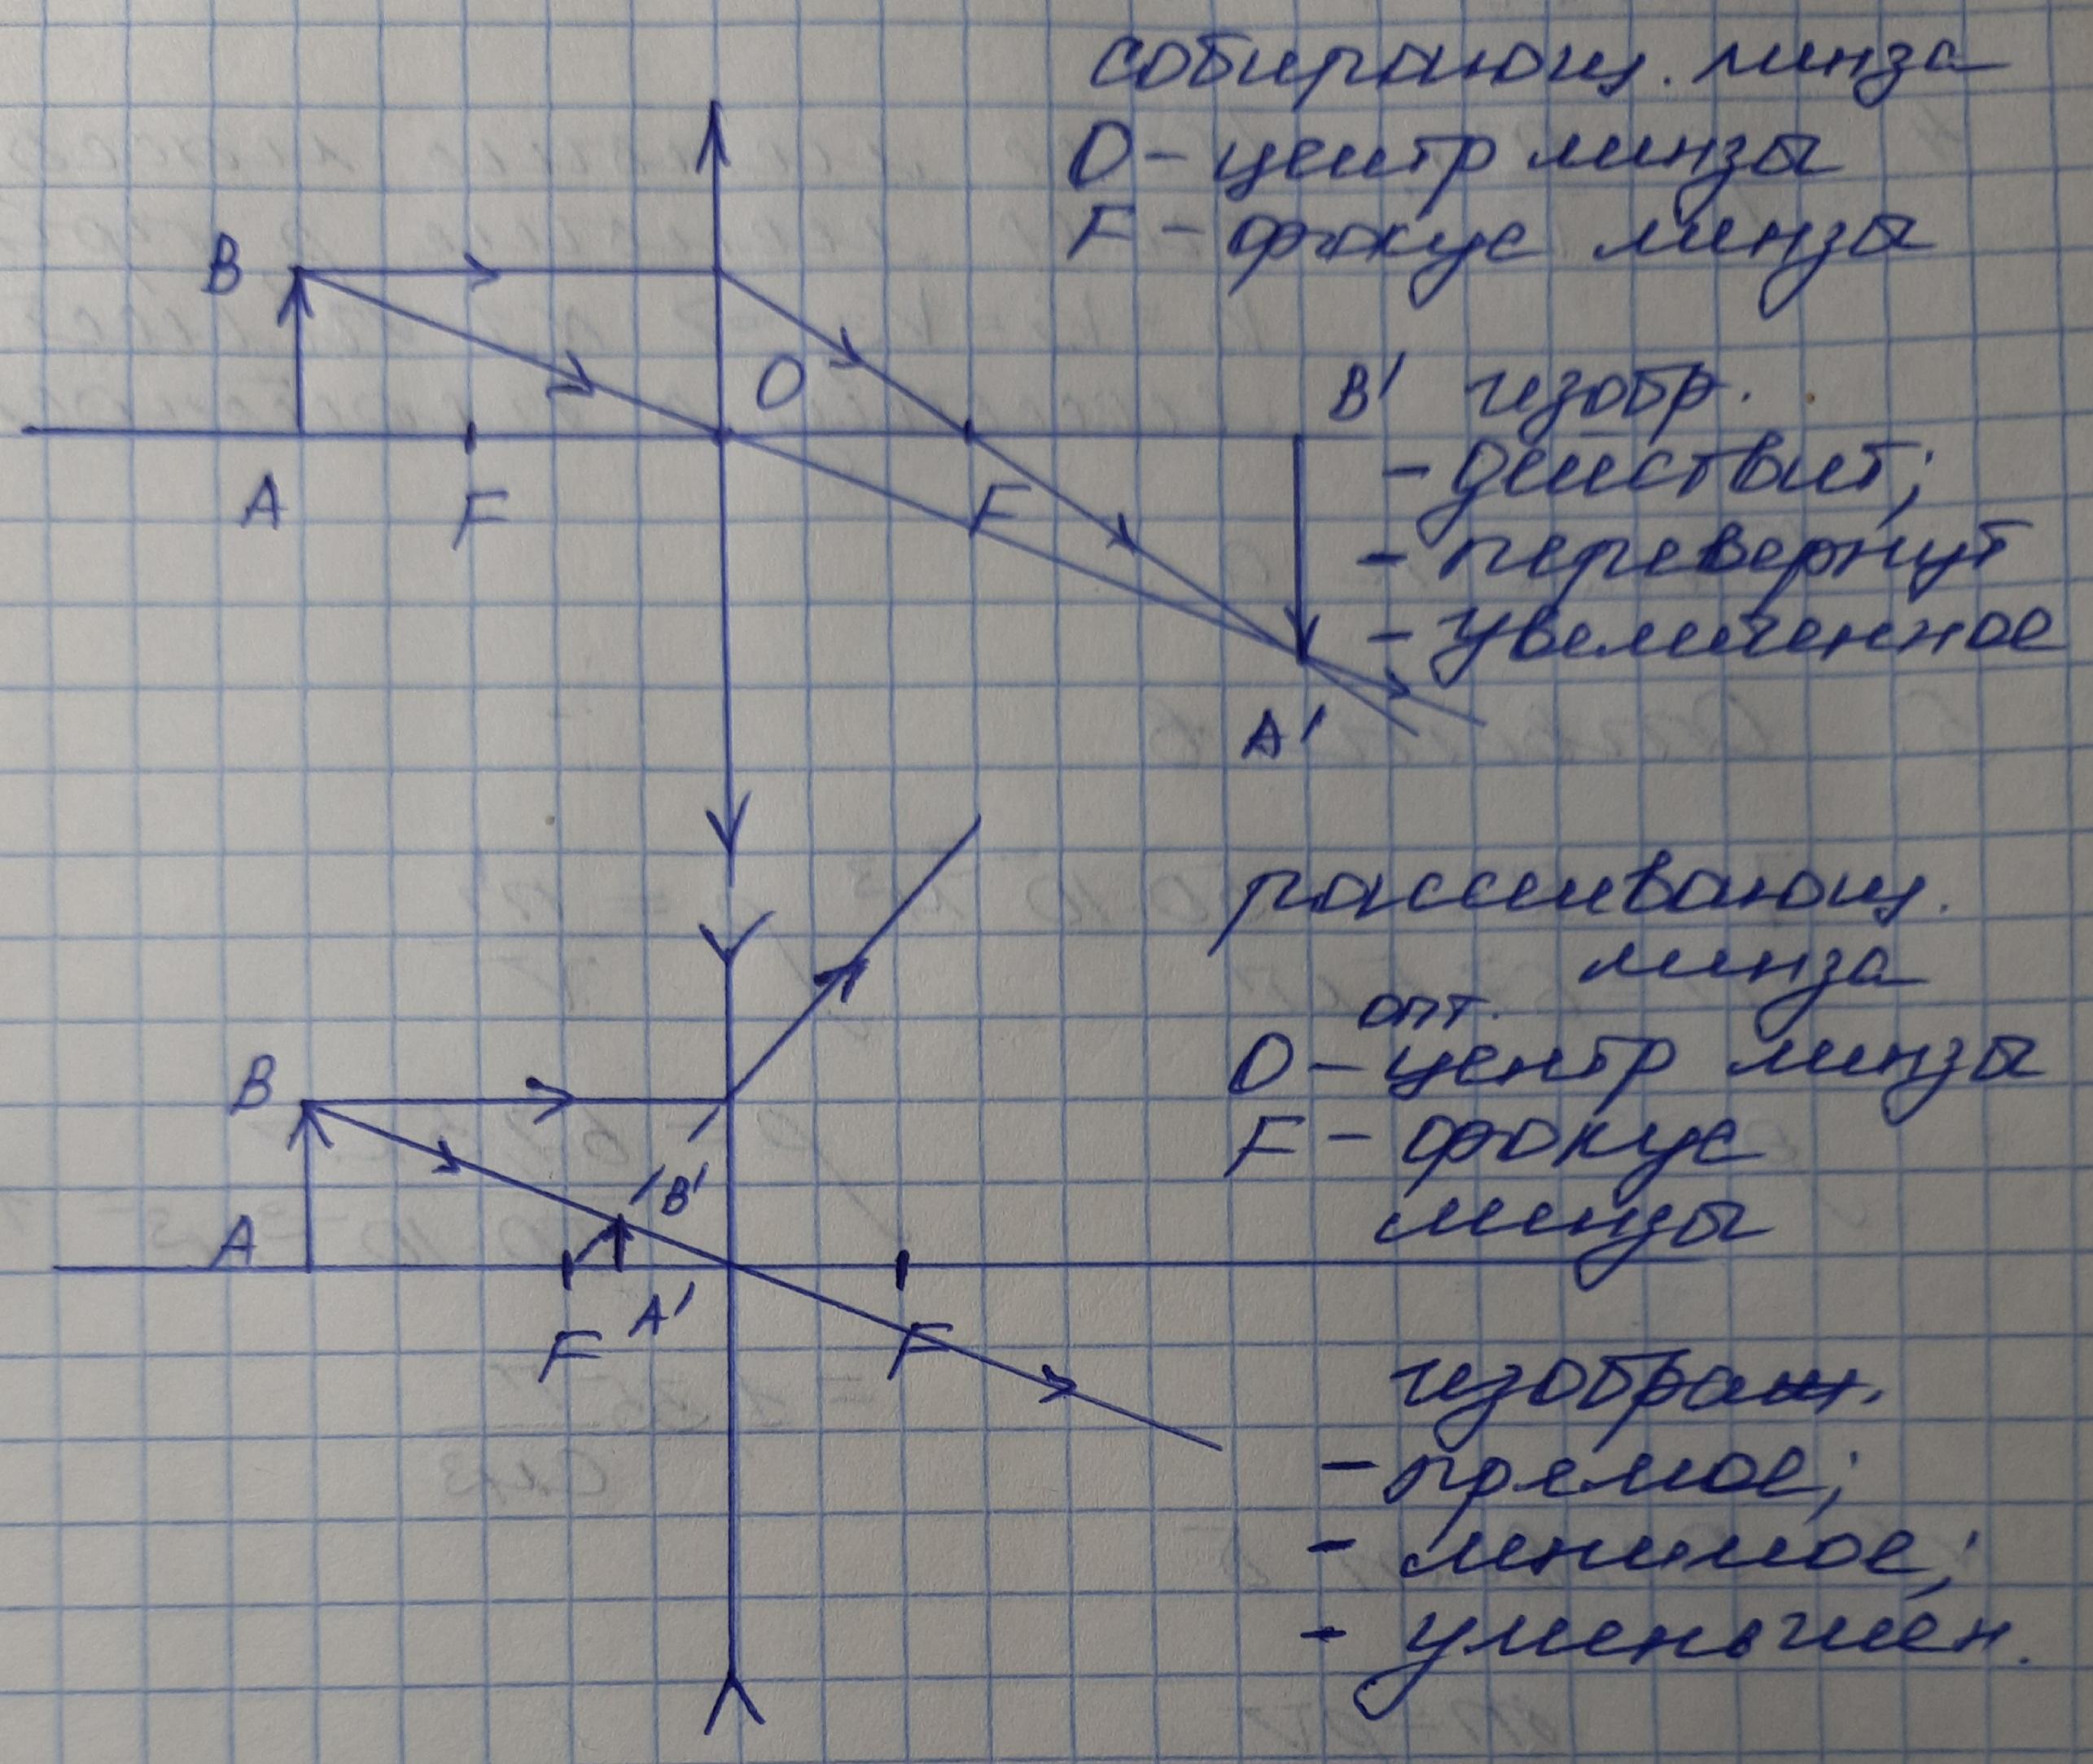 собирающ. линза
О – центр линзы
F – фокус линзы
B
O
B' изобр.
A F F
– действит;
– перевернут
– увеличенное
A'
рассеивающ.
линза
опт.
О – центр линзы
B
F – фокус
линзы
B'
A
A'
F F
изображ.
– прямое;
– мнимое;
– уменьшен.